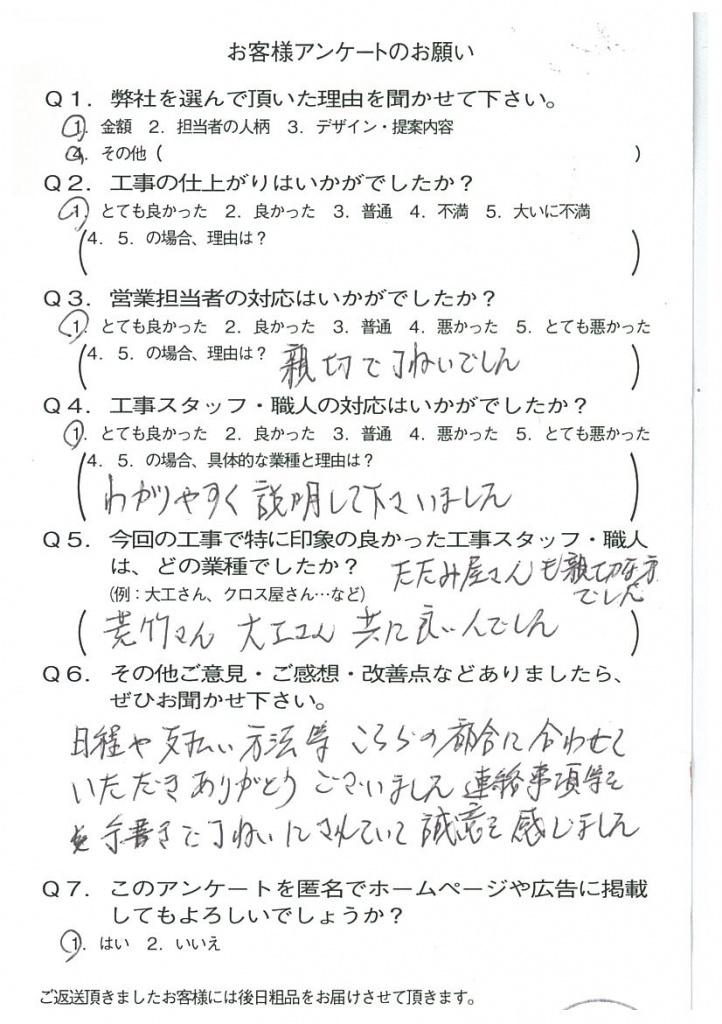 お客様アンケートのお願い
Q1. 弊社を選んで頂いた理由を聞かせて下さい。
1. 金額 2. 担当者の人柄 3. デザイン・提案内容
4. その他 ( )
Q2. 工事の仕上がりはいかがでしたか？
1. とても良かった 2. 良かった 3. 普通 4. 不満 5. 大いに不満
(4. 5. の場合、理由は？ )
Q3. 営業担当者の対応はいかがでしたか？
1. とても良かった 2. 良かった 3. 普通 4. 悪かった 5. とても悪かった
(4. 5. の場合、理由は？ 親切で丁ねいでした )
Q4. 工事スタッフ・職人の対応はいかがでしたか？
1. とても良かった 2. 良かった 3. 普通 4. 悪かった 5. とても悪かった
(4. 5. の場合、具体的な業種と理由は？
わかりやすく説明して下さいました )
Q5. 今回の工事で特に印象の良かった工事スタッフ・職人
は、どの業種でしたか？ たたみ屋さんも親切な方
(例：大工さん、クロス屋さん…など) でした
( 荒竹さん 大工さん 共に良い人でした )
Q6. その他ご意見・ご感想・改善点などありましたら、
ぜひお聞かせ下さい。
日程や支払い方法等 こちらの都合に合わせて
いただき ありがとうございました 連絡事項等を
手書きで丁ねいにされていて 誠意を感じました
Q7. このアンケートを匿名でホームページや広告に掲載
してもよろしいでしょうか？
1. はい 2. いいえ
ご返送頂きましたお客様には後日粗品をお届けさせて頂きます。